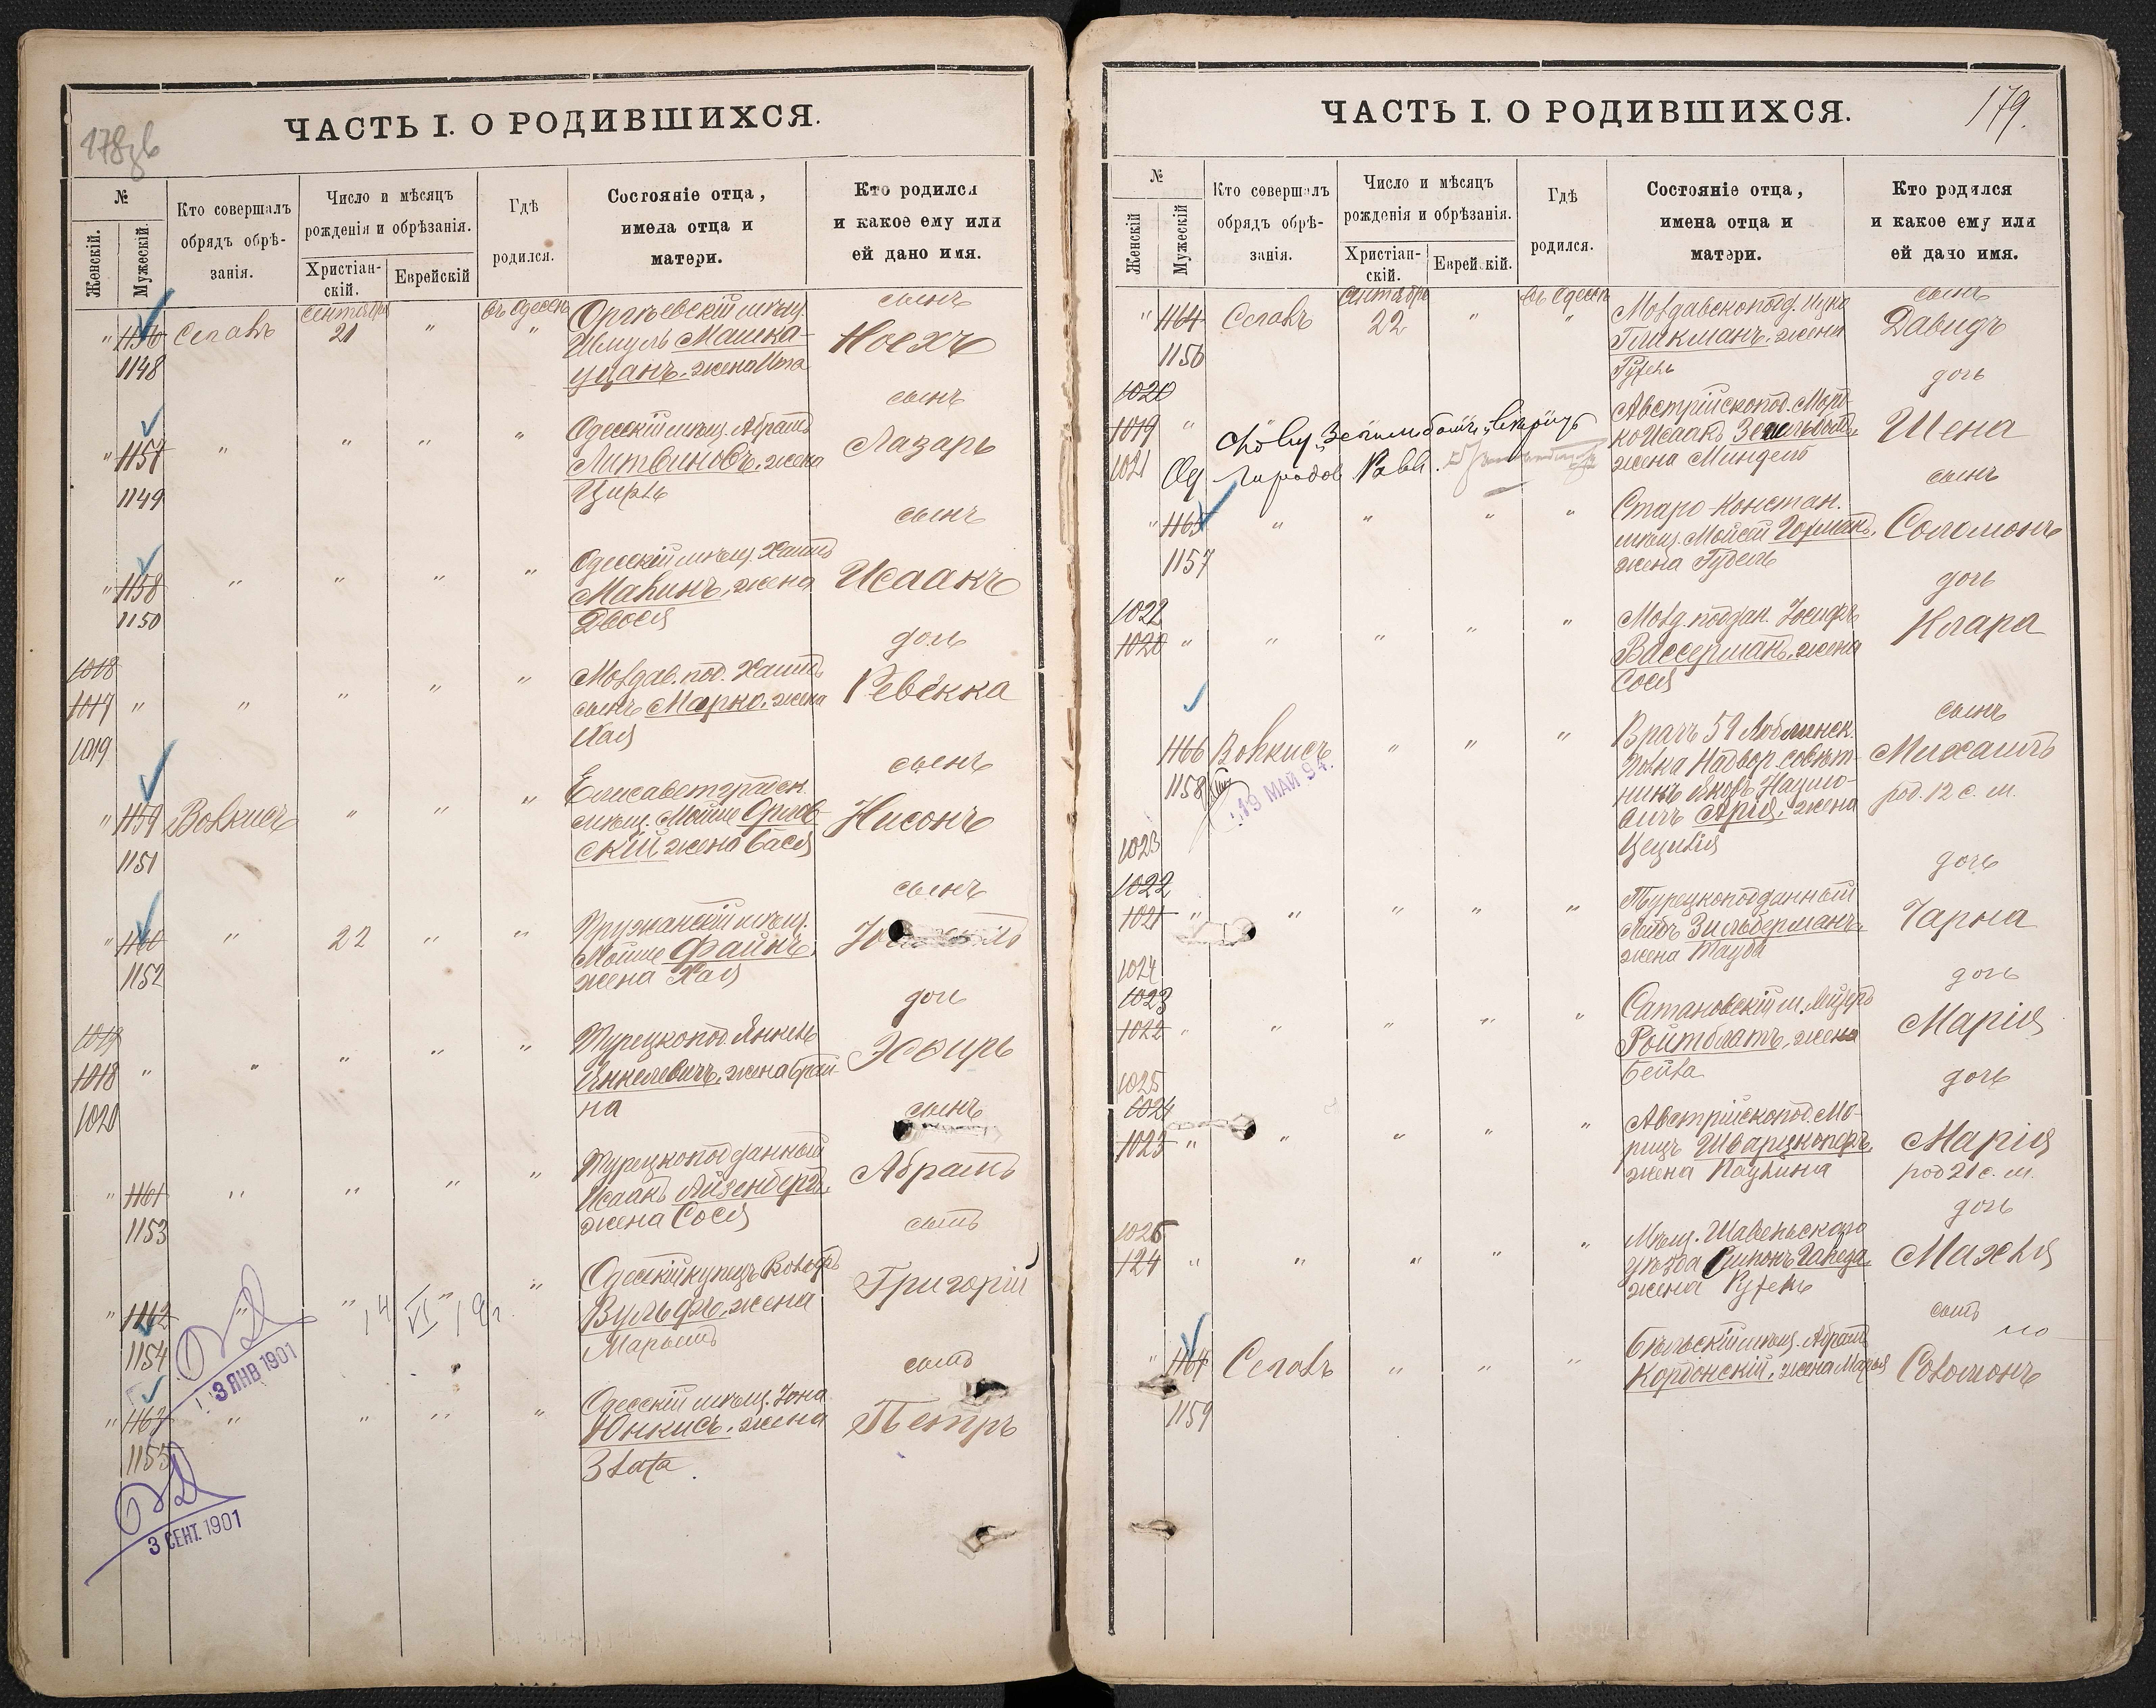 178зв
ЧАСТЬ I. О РОДИВШИХСЯ.
№
Женскій.
Мужескій.
Кто совершалъ
обрядъ обрѣ-
занія.
Число и мѣсяцъ
рожденія и обрѣзанія.
Христіан-
скій.
Еврейскій
Гдѣ
родился.
Состояніе отца,
имена отца и
матери.
Кто родился
и какое ему или
ей дано имя.
" 1156 Сигалъ Сентября 21 " въ Одессѣ "
1148
Оргѣевскій мѣщ.
Шмуль Машка-
уцанъ, жена Ита
сынъ
Ноехъ
1157 " " " "
1149
Одесскій мѣщ. Абрамъ
Литвиновъ, жена
Цирль
сынъ
Лазарь
" 1158 " " " "
1150
Одесскій мѣщ. Хаимъ
Малинъ, жена
Двося
сынъ
Исаакъ
1018
1017 " " " " "
1019
Молдав. под. Хаимъ
сынъ Марко, жена
Хая
дочь
Ревекка
" 1159 Волкисъ " " "
1151
Елисаветградск.
мѣщ. Мойше Орлов-
скій жена Бася
сынъ
Нисонъ
" 1160 " 22 " "
1152
Пружанскій мѣщ.
Мойше Файнъ,
жена Хая
сынъ
1019
1018 " " " " "
1020
Турецкопод. Янкель
Янкелевичъ, жена Брай-
на
дочь
Эсѳирь
" 1161 " " " "
1153
Турецкоподданный
Исаакъ Айзенбергъ,
жена Сося
сынъ
Абрамъ
" 1162 " " " "
14 VI 19 г.
1154
Одесскій купецъ Вольфъ
Вульфъ, жена
Марьямъ
сынъ
Григорій
3 ЯНВ 1901
" 1163 " " " "
1155
Одесскій мѣщ. Іона
Юнкисъ, жена
Злата.
сынъ
Петръ
3 СЕНТ. 1901
179.
ЧАСТЬ I. О РОДИВШИХСЯ.
№
Женскій
Мужескій
Кто совершалъ
обрядъ обрѣ-
занія.
Число и мѣсяцъ
рожденія и обрѣзанія.
Христіан-
скій.
Еврейскій.
Гдѣ
родился.
Состояніе отца,
имена отца и
матери.
Кто родился
и какое ему или
ей дано имя.
" 1164 Сигалъ Сентября 22 " въ Одессѣ "
1156
Молдавскопод. Ицко
Гликманъ, жена
Рухель
сынъ
Давидъ
1020
1019 "
1021
Австрійскопод. Морд-
ко Исаакъ
жена Миндель
дочь
Шена
" 1165 " " " "
1157
Старо-констан.
мѣщ. Мойсей Гофманъ,
жена Гудель
сынъ
Соломонъ
1022
1020 " " " " "
Молд. поддан. Іосифъ
Вассерманъ, жена
Сося
дочь
Клара
1166 Волкисъ " " "
1158
19 МАЙ 94.
Врачъ 59 Люблинск.
полка Надвор. совѣт-
никъ Яковъ
Арія, жена
Цецилія
сынъ
Михаилъ
род. 12 с. м.
1023
1022
1021 " " " " "
Турецкоподданный
Лейбъ Зильберманъ,
жена Тауба
дочь
Чарна
1024
1023
1022 " " " " "
Сатановскій м. Лейзеръ
Ройтблатъ, жена
Бейла
дочь
Марія
1025
1024
1023 " " " " "
Австрійскопод. Мо-
рицъ Шварцкопфъ,
жена Паулина
дочь
Марія
род 21 с. м.
1026
124 " " " " "
Мѣщ. Шавельскаго
уѣзда Симонъ
жена Рухель
дочь
Махля
" 1167 Сигалъ " " "
1159
Бѣльскій мѣщ. Абрамъ
Кордонскій, жена Марья
сынъ
Соломонъ